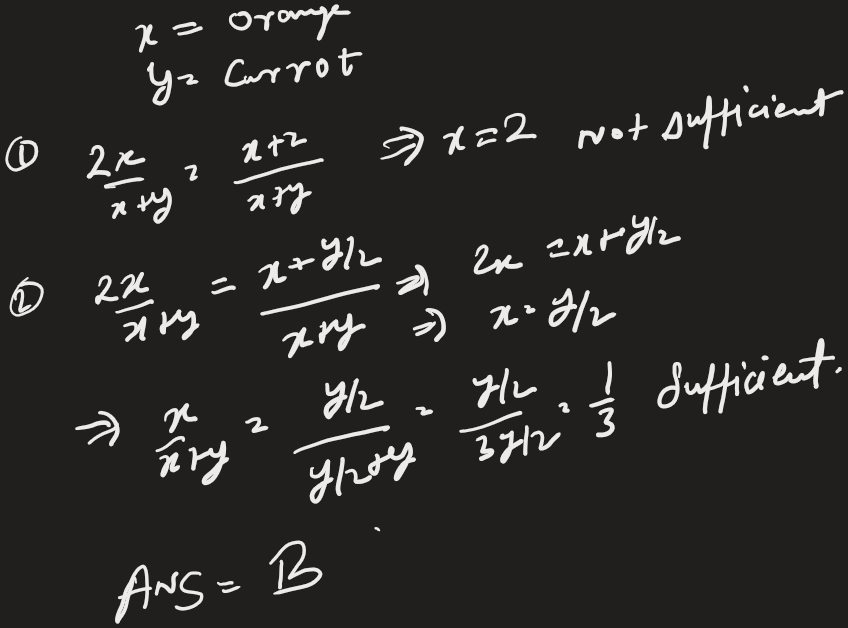 x = orange
y = Carrot
① 2x/x+y = x+2/x+y ⇒ x=2 Not sufficient
② 2x/x+y = x+y/2/x+y ⇒ 2x = x+y/2
⇒ x = y/2
⇒ x/x+y = y/2/y/2+y = y/2/3y/2 = 1/3 Sufficient.
ANS = B